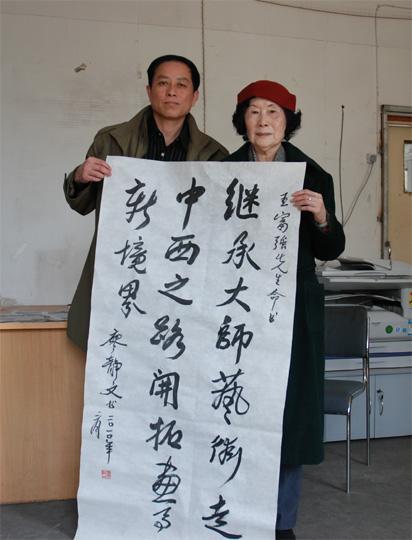 王富强先生命书
继承大師藝術走
中西之路開拓畫马
新境界
廖静文书二〇一〇年